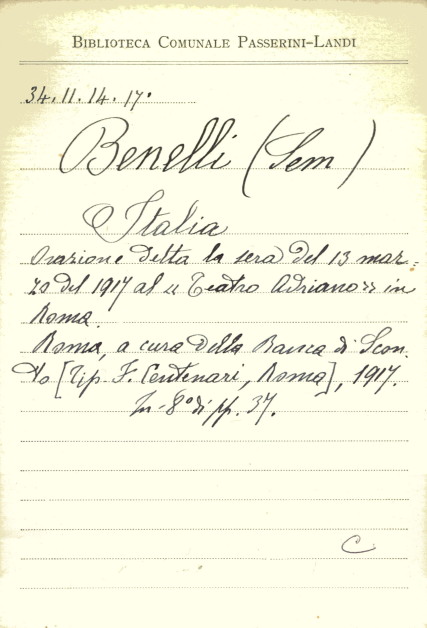 BIBLIOTECA COMUNALE PASSERINI-LANDI
34.11.14.17º
Benelli (Sem)
Italia
Orazione detta la sera del 13 mar=
zo del 1917 al « Teatro Adriano » in
Roma.
Roma, a cura della Banca di Scon.
to [Tip. F. Centenari, Roma], 1917.
In-8º di pp. 37.
C